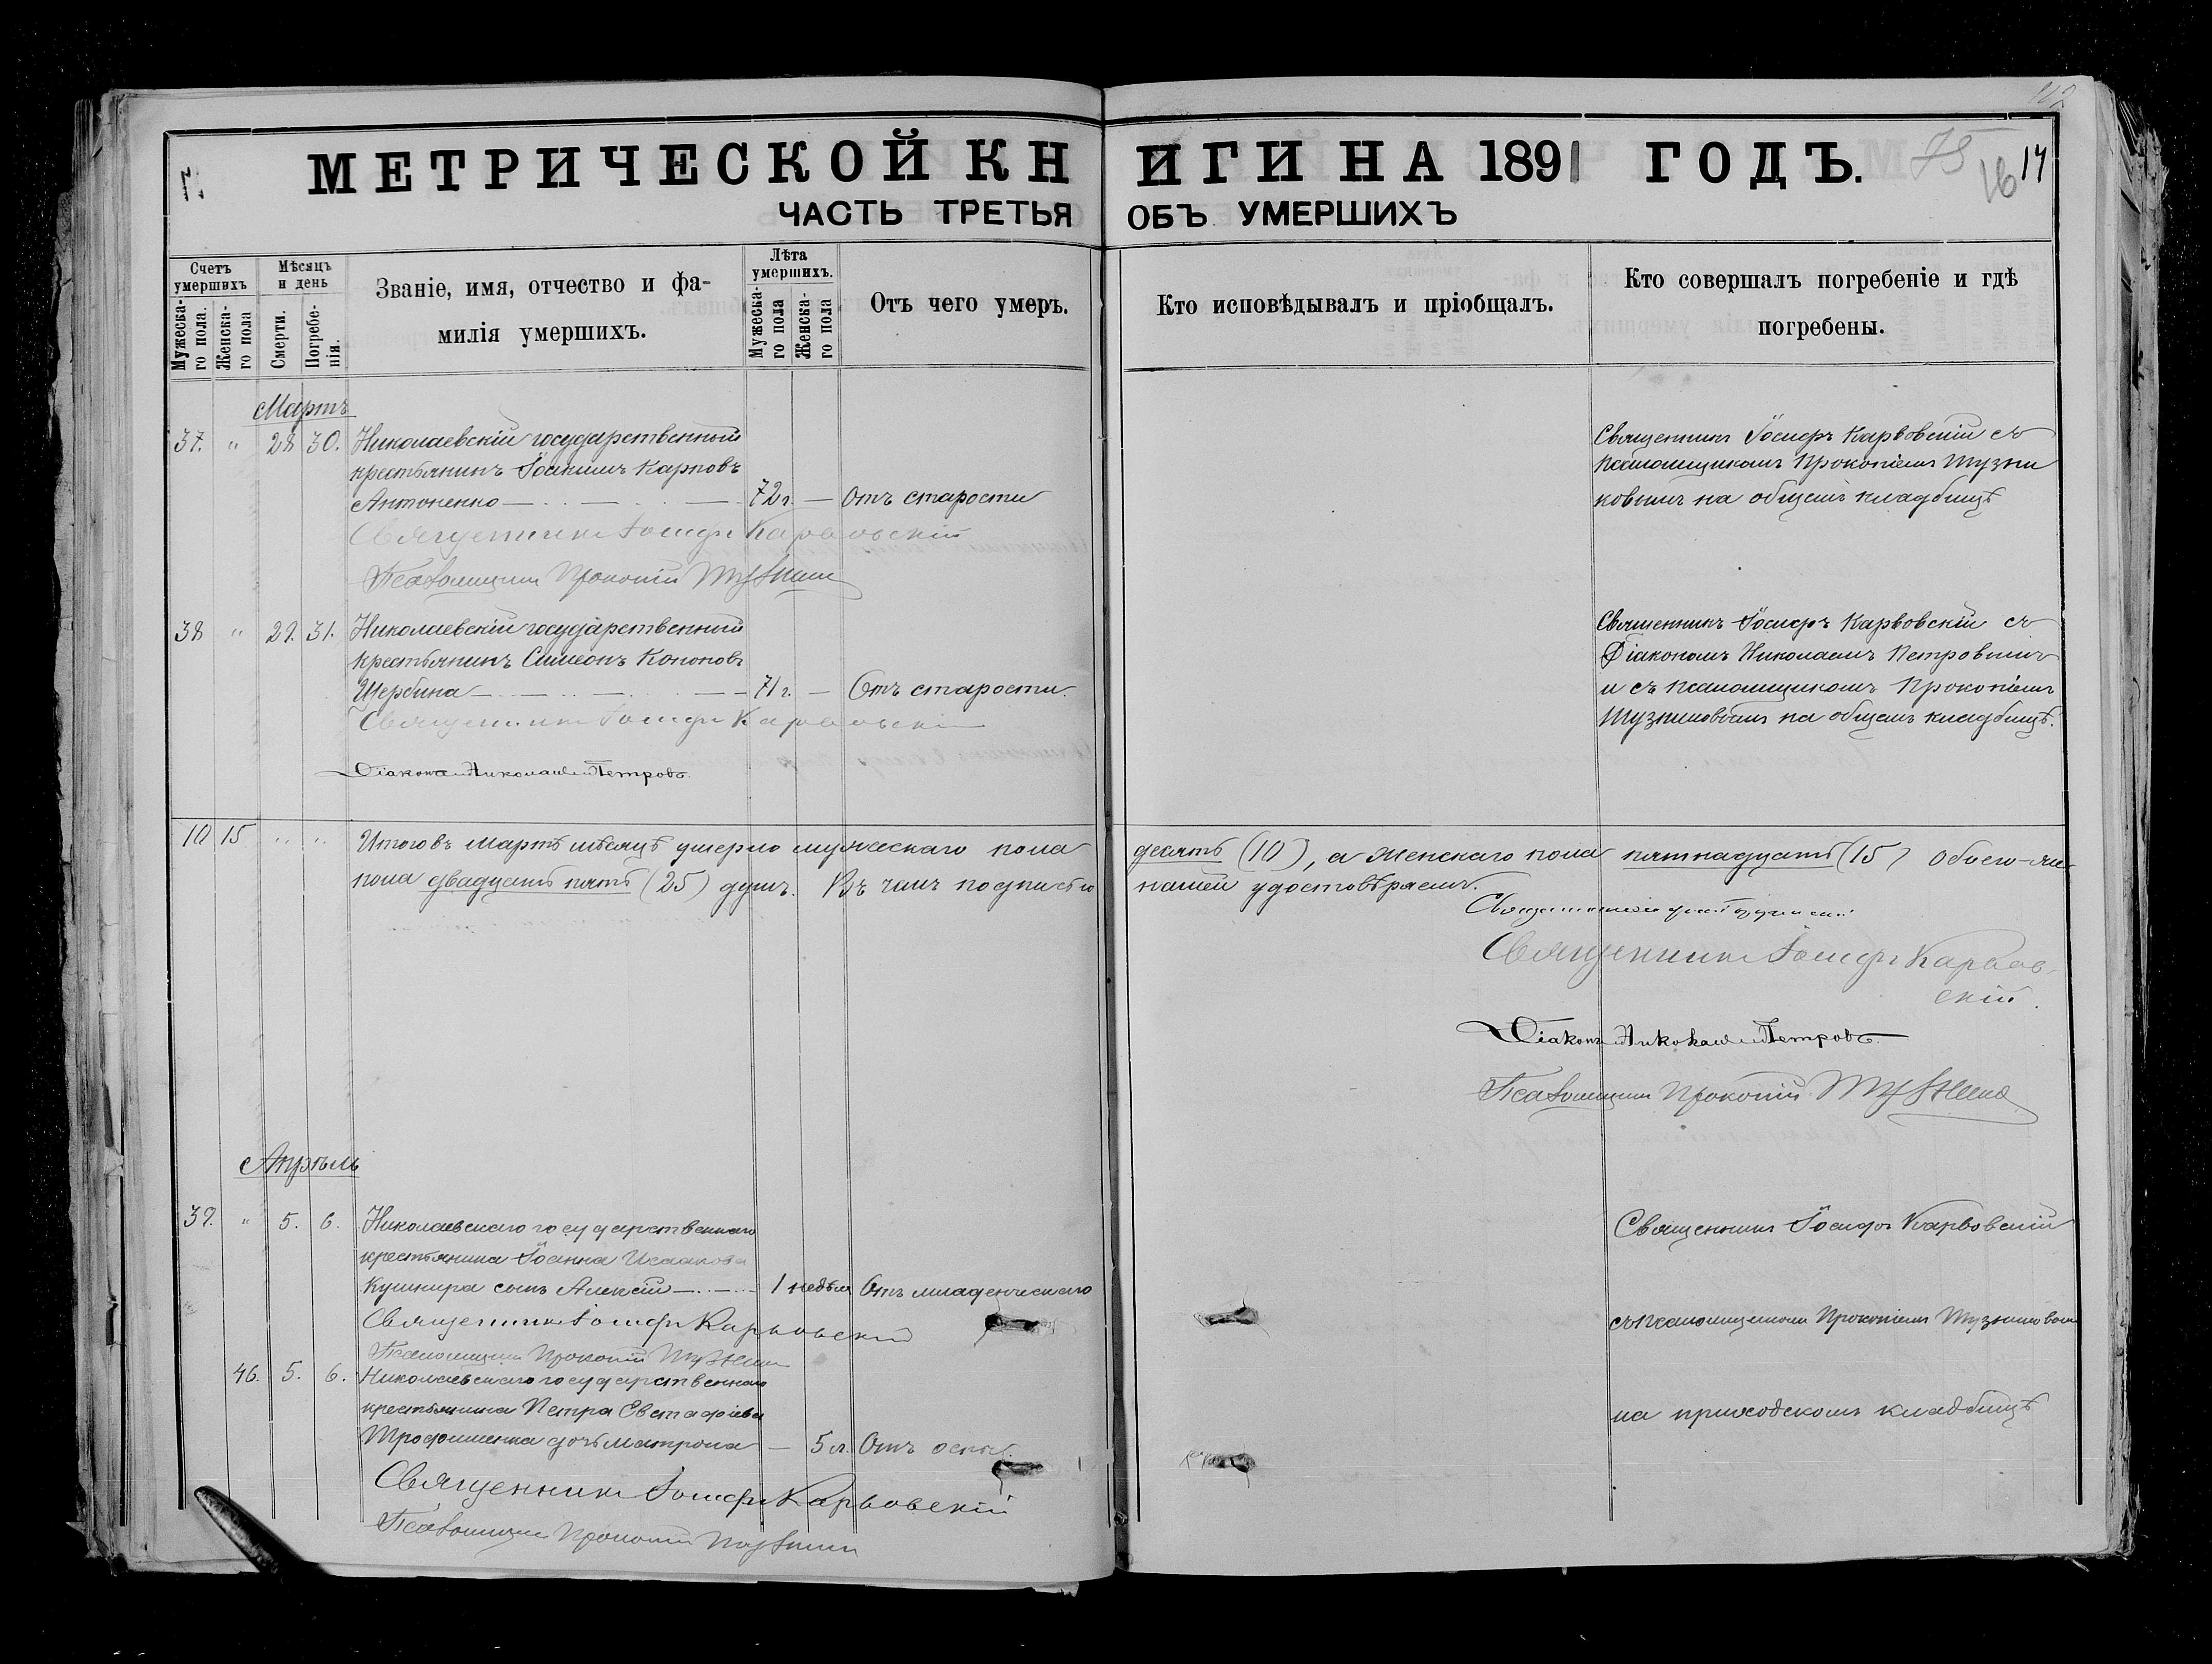 112
МЕТРИЧЕСКОЙ КНИГИ НА 1891 ГОДЪ.
75 16 17
ЧАСТЬ ТРЕТЬЯ ОБЪ УМЕРШИХЪ
Счетъ умершихъ
Мужеска-го пола.
Женска-го пола
Мѣсяцъ и день
Смерти.
Погребе-нія.
Званіе, имя, отчество и фа-
милія умершихъ.
Лѣта умершихъ.
Мужеска-го пола
Женска-го пола
Отъ чего умеръ.
Кто исповѣдывалъ и пріобщалъ.
Кто совершалъ погребеніе и гдѣ
погребены.
Мартъ
37. " 28 30. Николаевскій государственный
крестьянинъ Іоакимъ Карповъ
Антоненко 72 г. — Отъ старости
Священникъ Іосифъ Карвовскій съ
псаломщикомъ Прокопіемъ Тузни
ковымъ на общемъ кладбищѣ
Священникъ Іосифъ Карвовскій
Псаломщикъ Прокопій
38 " 29. 31. Николаевскій государственный
крестьянинъ Симеонъ Кононовъ
Щербина 71 г. — Отъ старости.
Священникъ Іосифъ Карвовскій съ
Діакономъ Николаемъ Петровымъ
и съ псаломщикомъ Прокопіемъ
Тузниковымъ на общемъ кладбищѣ.
Священникъ Іосифъ Карвовскій
Діаконъ Николай Петровъ
10 15 " " Итого въ Мартѣ мѣсяцѣ умерло мужескаго пола десять (10), а женскаго пола пятнадцать (15) обоего-же
пола двадцать пять (25) душъ. Въ чемъ подписью нашей удостовѣряемъ.
Священникъ
Священникъ Іосифъ Карвов-
скій.
Діаконъ Николай Петровъ
Псаломщикъ Прокопій
Апрѣль
39. " 5. 6. Николаевскаго государственнаго
крестьянина Іоанна Исаакова
Кушнира сынъ Алексій 1 недѣля Отъ младенческаго
Священникъ Іосифъ Карвовскій
Псаломщикъ Прокопій
46. 5. 6. Николаевскаго государственнаго
крестьянина Петра Евстафіева
Трофименка дочь Матрона — 5 л. Отъ оспы.
Священникъ Іосифъ Карвовскій
Псаломщикъ Прокопій
Священникъ Іосифъ Карвовскій
съ псаломщикомъ Прокопіемъ Тузниковымъ
на приходскомъ кладбищѣ